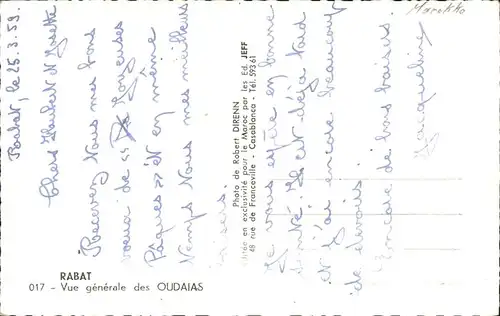 Marokko
Rabat, le 25.3.59.
Chers Hubert et Josette
Recevez tous mes bons
voeux de "Joyeuses
Pâques" et en même
temps tous mes meilleurs
baisers.
Je vous espère en bonne
santé. Il est déjà tard
et j'ai encore beaucoup
de devoirs.
Encore de bons baisers
Jacqueline
Photo de Robert DIRENN
Editée en exclusivité pour le Maroc par les Ed. JEFF
48 rue de Franceville - Casablanca - Tél. 593 61
RABAT
017 - Vue générale des OUDAIAS